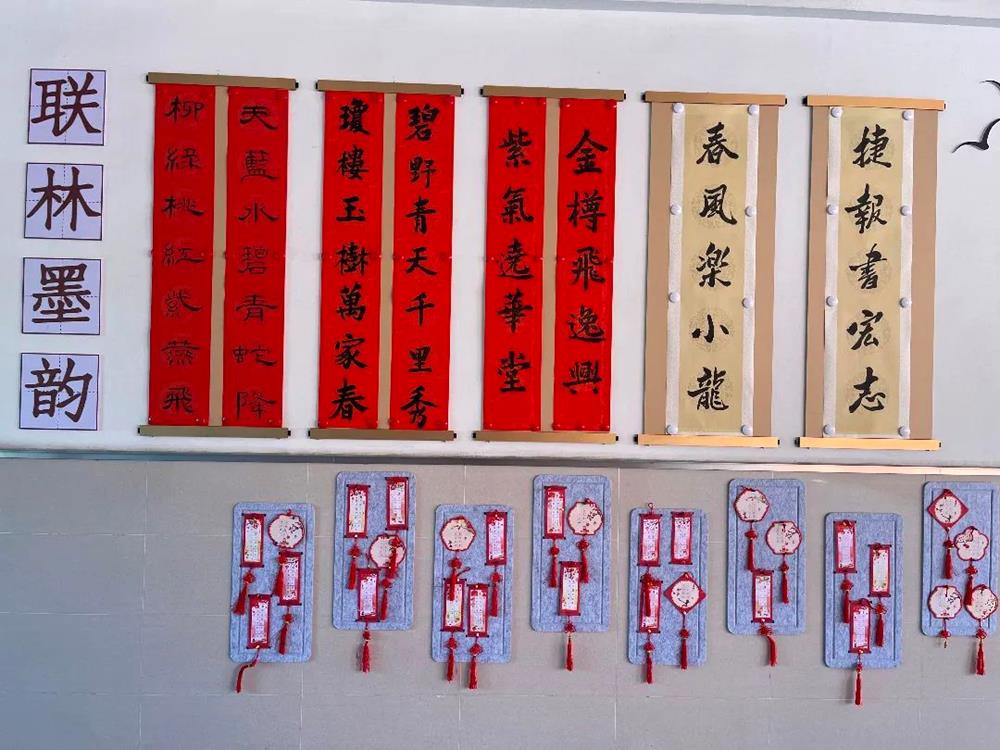 联林墨韵
天藍水碧青蛇降
柳綠桃紅紫燕飛
碧野青天千里秀
瓊樓玉樹萬家春
金樽飛逸興
紫氣遶華堂
春風楽小龍
捷報書宏志